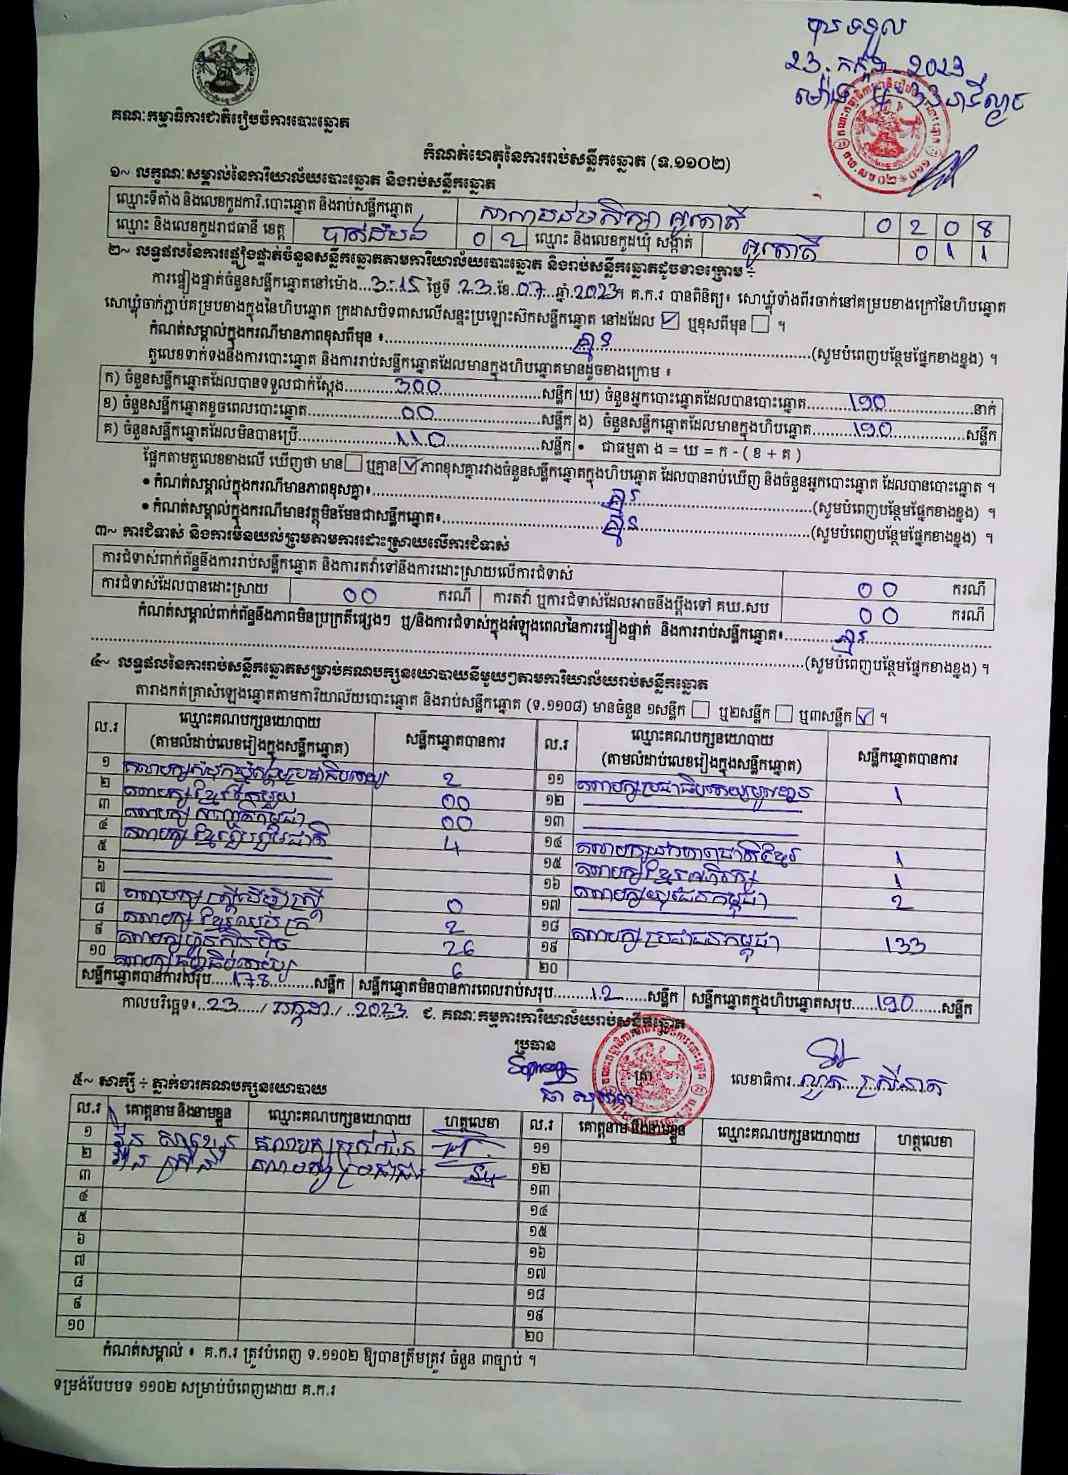 បានទទួល
23. កក្កដា. 2023
គណៈកម្មាធិការជាតិរៀបចំការបោះឆ្នោត
កំណត់ហេតុនៃការរាប់សន្លឹកឆ្នោត (ទ.១១០២)
១~ លក្ខណៈសម្គាល់នៃការិយាល័យបោះឆ្នោត និងរាប់សន្លឹកឆ្នោត
ឈ្មោះទីតាំង និងលេខកូដការិ.បោះឆ្នោត និងរាប់សន្លឹកឆ្នោត សាលាបឋមសិក្សា អូរតាគី 0 2 0 8
ឈ្មោះ និងលេខកូដរាជធានី ខេត្ត បាត់ដំបង 0 2 ឈ្មោះ និងលេខកូដឃុំ សង្កាត់ អូរតាគី 0 1 1
២~ លទ្ធផលនៃការផ្ទៀងផ្ទាត់ចំនួនសន្លឹកឆ្នោតតាមការិយាល័យបោះឆ្នោត និងរាប់សន្លឹកឆ្នោតដូចខាងក្រោម ÷
ការផ្ទៀងផ្ទាត់ចំនួនសន្លឹកឆ្នោតនៅម៉ោង...3:15 ថ្ងៃទី.23.ខែ.07...ឆ្នាំ.2023។ គ.ក.រ បានពិនិត្យ៖ សោឃ្លុំទាំងពីរចាក់នៅគម្របខាងក្រៅនៃហិបឆ្នោត
សោឃ្លុំចាក់ភ្ជាប់គម្របខាងក្នុងនៃហិបឆ្នោត ក្រដាសបិទពាសលើសន្ទះប្រឡោះស៊កសន្លឹកឆ្នោត នៅដដែល ☑ ឬខុសពីមុន ☐ ។
កំណត់សម្គាល់ក្នុងករណីមានភាពខុសពីមុន ៖ គ្មាន (សូមបំពេញបន្ថែមផ្នែកខាងខ្នង) ។
តួលេខទាក់ទងនឹងការបោះឆ្នោត និងការរាប់សន្លឹកឆ្នោតដែលមានក្នុងហិបឆ្នោតមានដូចខាងក្រោម ៖
ក) ចំនួនសន្លឹកឆ្នោតដែលបានទទួលជាក់ស្តែង 300 សន្លឹក ឃ) ចំនួនអ្នកបោះឆ្នោតដែលបានបោះឆ្នោត 190 នាក់
ខ) ចំនួនសន្លឹកឆ្នោតខូចពេលបោះឆ្នោត 00 សន្លឹក ង) ចំនួនសន្លឹកឆ្នោតដែលមានក្នុងហិបឆ្នោត 190 សន្លឹក
គ) ចំនួនសន្លឹកឆ្នោតដែលមិនបានប្រើ 110 សន្លឹក • ជាធម្មតា ង = ឃ = ក - ( ខ + គ )
ផ្អែកតាមតួលេខខាងលើ ឃើញថា មាន ☐ ឬគ្មាន ☑ ភាពខុសគ្នារវាងចំនួនសន្លឹកឆ្នោតក្នុងហិបឆ្នោត ដែលបានរាប់ឃើញ និងចំនួនអ្នកបោះឆ្នោត ដែលបានបោះឆ្នោត ។
• កំណត់សម្គាល់ក្នុងករណីមានភាពខុសគ្នា៖ គ្មាន (សូមបំពេញបន្ថែមផ្នែកខាងខ្នង) ។
• កំណត់សម្គាល់ក្នុងករណីមានវត្ថុមិនមែនជាសន្លឹកឆ្នោត៖ គ្មាន (សូមបំពេញបន្ថែមផ្នែកខាងខ្នង) ។
៣~ ការជំទាស់ និងការមិនយល់ព្រមតាមការដោះស្រាយលើការជំទាស់
ការជំទាស់ពាក់ព័ន្ធនឹងការរាប់សន្លឹកឆ្នោត និងការតវ៉ាទៅនឹងការដោះស្រាយលើការជំទាស់ 00 ករណី
ការជំទាស់ដែលបានដោះស្រាយ 00 ករណី ការតវ៉ា ឬការជំទាស់ដែលអាចនឹងប្តឹងទៅ គឃ.សប 00 ករណី
កំណត់សម្គាល់ពាក់ព័ន្ធនឹងភាពមិនប្រក្រតីផ្សេងៗ ឬ/និងការជំទាស់ក្នុងអំឡុងពេលនៃការផ្ទៀងផ្ទាត់ និងការរាប់សន្លឹកឆ្នោត៖ គ្មាន
(សូមបំពេញបន្ថែមផ្នែកខាងខ្នង) ។
៤~ លទ្ធផលនៃការរាប់សន្លឹកឆ្នោតសម្រាប់គណបក្សនយោបាយនីមួយៗតាមការិយាល័យរាប់សន្លឹកឆ្នោត
តារាងកត់ត្រាសំឡេងឆ្នោតតាមការិយាល័យបោះឆ្នោត និងរាប់សន្លឹកឆ្នោត (ទ.១១០៨) មានចំនួន ១សន្លឹក ☐ ឬ២សន្លឹក ☐ ឬ៣សន្លឹក ☑ ។
ល.រ ឈ្មោះគណបក្សនយោបាយ (តាមលំដាប់លេខរៀងក្នុងសន្លឹកឆ្នោត) សន្លឹកឆ្នោតបានការ ល.រ ឈ្មោះគណបក្សនយោបាយ (តាមលំដាប់លេខរៀងក្នុងសន្លឹកឆ្នោត) សន្លឹកឆ្នោតបានការ
១ 2 ១១ គណបក្សប្រជាធិបតេយ្យមូលដ្ឋាន 1
២ គណបក្សខ្មែរតែមួយ 00 ១២
៣ 00 ១៣
៤ 4 ១៤ 1
៥ ១៥ គណបក្សខ្មែរអភិរក្ស 1
៦ ១៦ គណបក្សយុវជនកម្ពុជា 2
៧ គណបក្សស្រ្តីដើម្បីស្រ្តី 0 ១៧
៨ គណបក្សខ្មែរឈប់ក្រ 2 ១៨ គណបក្សប្រជាជនកម្ពុជា 133
៩ គណបក្សហ៊្វុនស៊ិនប៉ិច 26 ១៩
១០ 6 ២០
សន្លឹកឆ្នោតបានការសរុប 178 សន្លឹក សន្លឹកឆ្នោតមិនបានការពេលរាប់សរុប 12 សន្លឹក សន្លឹកឆ្នោតក្នុងហិបឆ្នោតសរុប 190 សន្លឹក
កាលបរិច្ឆេទ៖ 23 / កក្កដា / 2023. ៩. គណៈកម្មការការិយាល័យរាប់សន្លឹកឆ្នោត
ប្រធាន
ត្រា លេខាធិការ
៥~ សាក្សី ÷ ភ្នាក់ងារគណបក្សនយោបាយ
ល.រ គោត្តនាម និងនាមខ្លួន ឈ្មោះគណបក្សនយោបាយ ហត្ថលេខា ល.រ គោត្តនាម និងនាមខ្លួន ឈ្មោះគណបក្សនយោបាយ ហត្ថលេខា
១ ១១
២ ១២
៣ ១៣
៤ ១៤
៥ ១៥
៦ ១៦
៧ ១៧
៨ ១៨
៩ ១៩
១០ ២០
កំណត់សម្គាល់ ៖ គ.ក.រ ត្រូវបំពេញ ទ.១១០២ ឱ្យបានត្រឹមត្រូវ ចំនួន ៣ច្បាប់ ។
ទម្រង់បែបបទ ១១០២ សម្រាប់បំពេញដោយ គ.ក.រ